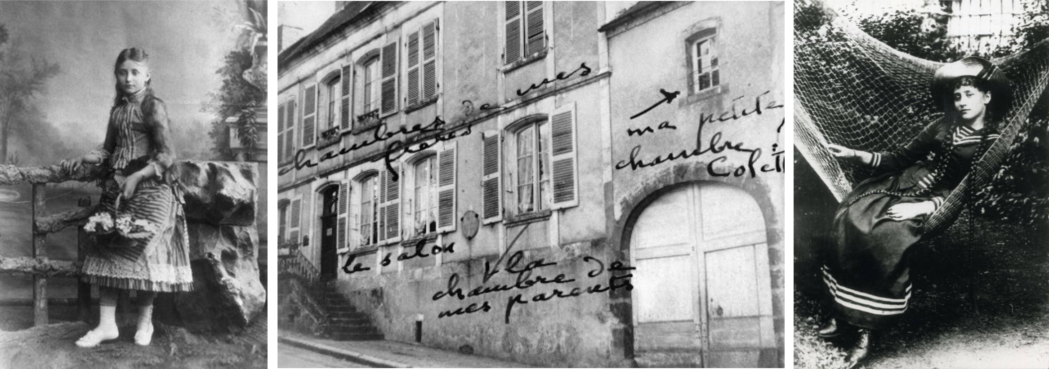 chambres de mes
frères
ma petite
chambre :
Colette
le salon
la
chambre de
mes parents